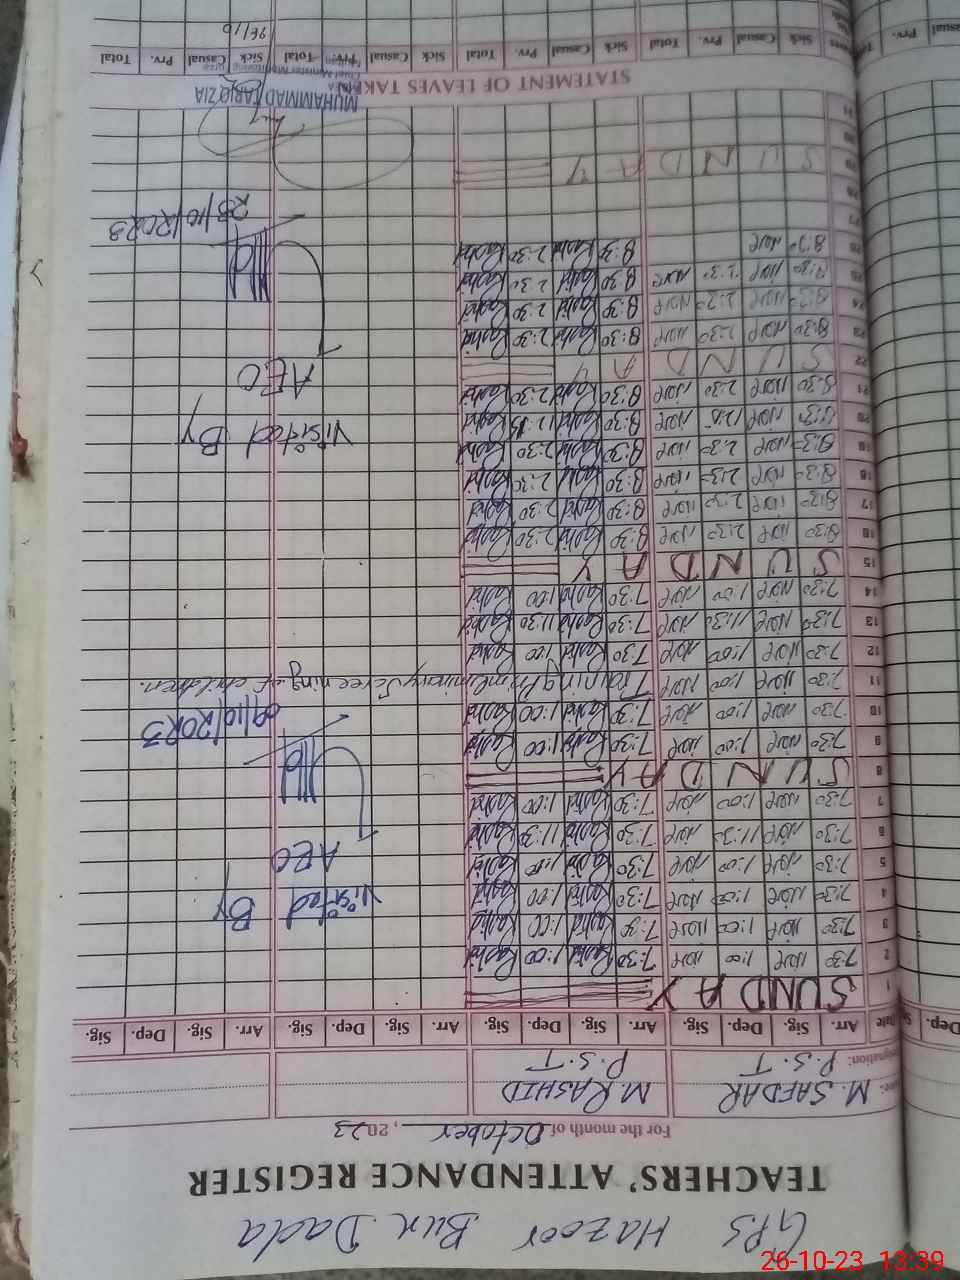 GPS Hazoor Bux Dada
TEACHERS' ATTENDANCE REGISTER
For the month of October, 2023
M. SAFDAR M. RASHID
P.S.T P.S.T
Date Arr. Sig. Dep. Sig. Arr. Sig. Dep. Sig. Arr. Sig. Dep. Sig. Arr. Sig. Dep. Sig.
1 SUNDAY
2 7:30 1:00 7:30 Rashid 1:00 Rashid
3 7:30 1:00 7:30 Rashid 1:00 Rashid
4 7:30 1:00 7:30 Rashid 1:00 Rashid
5 7:30 1:00 7:30 Rashid 1:00 Rashid
6 7:30 11:30 7:30 Rashid 11:30 Rashid
7 7:30 1:00 7:30 Rashid 1:00 Rashid
8 SUNDAY
9 7:30 1:00 7:30 Rashid 1:00 Rashid
10 7:30 1:00 7:30 Rashid 1:00 Rashid
11 7:30 1:00 Training Screening of children.
12 7:30 1:00 7:30 Rashid 1:00 Rashid
13 7:30 11:30 7:30 Rashid 11:30 Rashid
14 7:30 1:00 7:30 Rashid 1:00 Rashid
15 SUNDAY
16 8:30 2:30 8:30 Rashid 2:30 Rashid
17 8:30 2:30 8:30 Rashid 2:30 Rashid
18 8:30 2:30 8:30 Rashid 2:30 Rashid
19 8:30 2:30 8:30 Rashid 2:30 Rashid
20 8:30 12:15 8:30 Rashid 12:15 Rashid
21 8:30 2:30 8:30 Rashid 2:30 Rashid
22 SUNDAY
23 8:30 2:30 8:30 Rashid 2:30 Rashid
24 8:30 2:30 8:30 Rashid 2:30 Rashid
25 8:30 2:30 8:30 Rashid 2:30 Rashid
26 8:30 8:30 Rashid 2:30 Rashid
27
28
29 SUNDAY
30
31
Visited By
AEO
09/10/2023
Visited By
AEO
23/10/2023
MUHAMMAD TARIQ ZIA
STATEMENT OF LEAVES TAKEN
Sick Casual Prv. Total Sick Casual Prv. Total Sick Casual Prv. Total Sick Casual Prv. Total
26/10
26-10-23 13:39